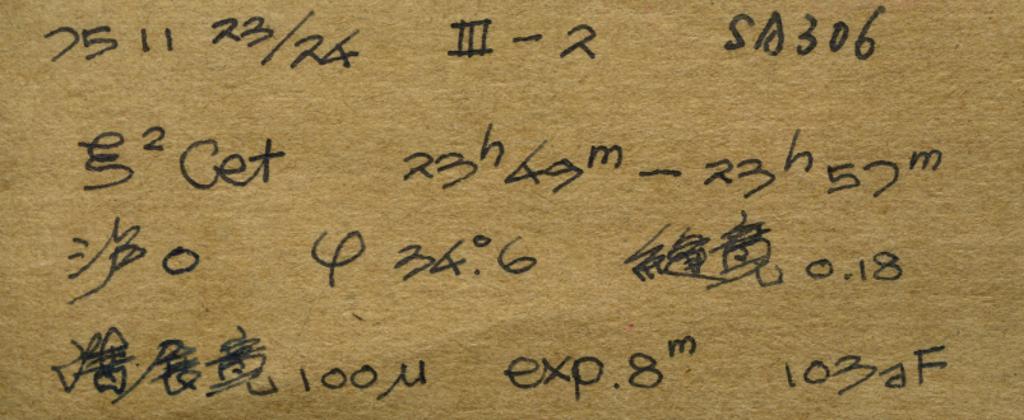 75 11 23/24 III-2 SA306
ξ² Cet 23ʰ49ᵐ — 23ʰ57ᵐ
沪 0 φ 34°.6 縫宽 0.18
谱展宽 100μ exp. 8ᵐ 103aF